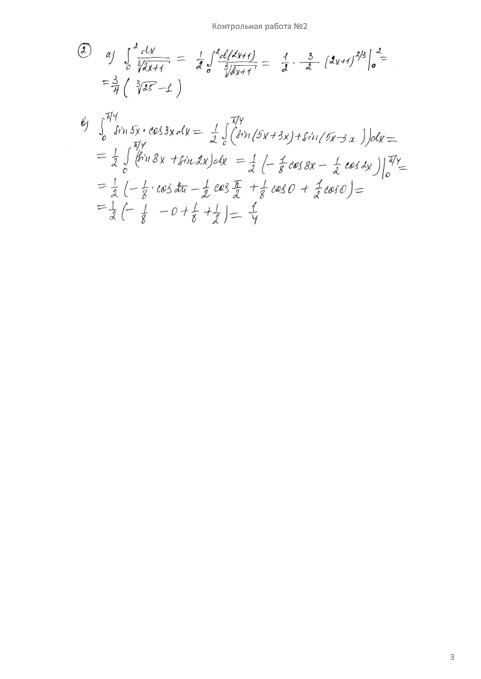 Контрольная работа №2
② а) ∫₀² dx/∛(2x+1) = 1/2 ∫₀² d(2x+1)/∛(2x+1) = 1/2 · 3/2 · (2x+1)^(2/3) |₀² =
= 3/4 ( ∛25 − 1 )
в) ∫₀^(π/4) sin 5x · cos 3x dx = 1/2 ∫₀^(π/4) (sin(5x+3x) + sin(5x−3x)) dx =
= 1/2 ∫₀^(π/4) (sin 8x + sin 2x) dx = 1/2 (− 1/8 cos 8x − 1/2 cos 2x) |₀^(π/4) =
= 1/2 (− 1/8 · cos 2π − 1/2 cos π/2 + 1/8 cos 0 + 1/2 cos 0) =
= 1/2 (− 1/8 − 0 + 1/8 + 1/2) = 1/4
3